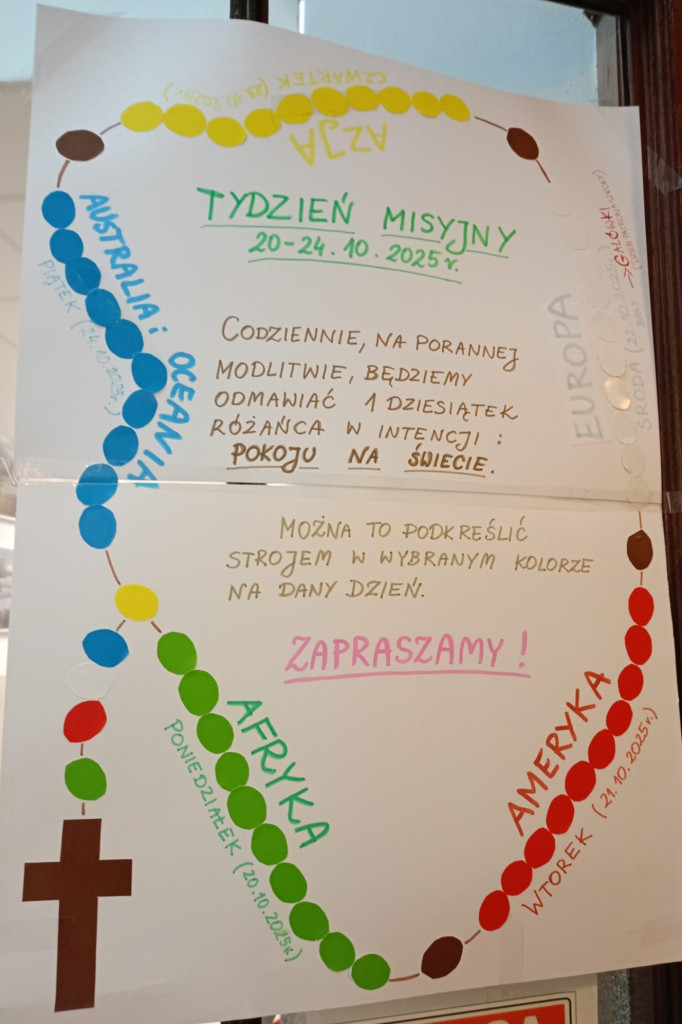 CZWARTEK (23.10.2025r.)
AZJA
TYDZIEŃ MISYJNY
20-24.10.2025r.
AUSTRALIA i OCEANIA
PIĄTEK (24.10.2025r.)
CODZIENNIE, NA PORANNEJ
MODLITWIE, BĘDZIEMY
ODMAWIAĆ 1 DZIESIĄTEK
RÓŻAŃCA W INTENCJI :
POKOJU NA ŚWIECIE.
EUROPA
ŚRODA (22.10.2025
GALÓWKI
MOŻNA TO PODKREŚLIĆ
STROJEM W WYBRANYM KOLORZE
NA DANY DZIEŃ.
ZAPRASZAMY !
AFRYKA
PONIEDZIAŁEK (20.10.2025r.)
AMERYKA
WTOREK (21.10.2025r.)